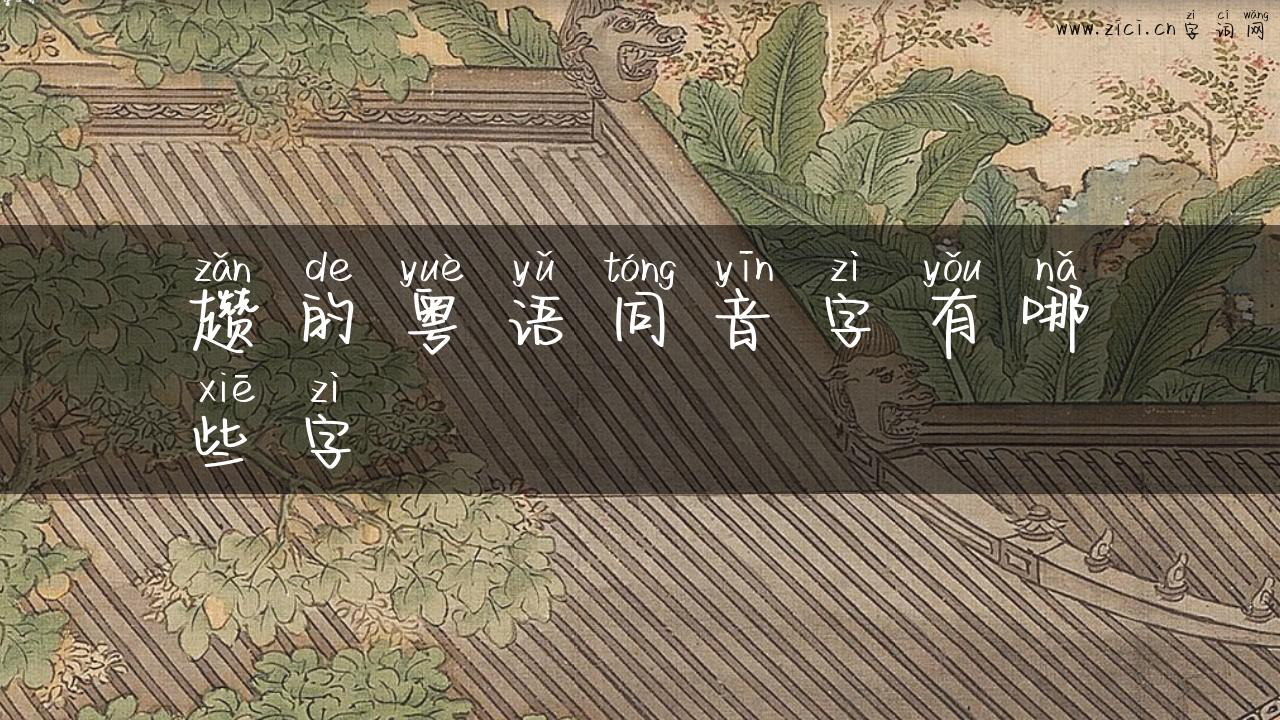 zì cí wǎng
www.zici.cn 字词网
zǎn de yuè yǔ tóng yīn zì yǒu nǎ
趱的粤语同音字有哪
xiē zì
些字